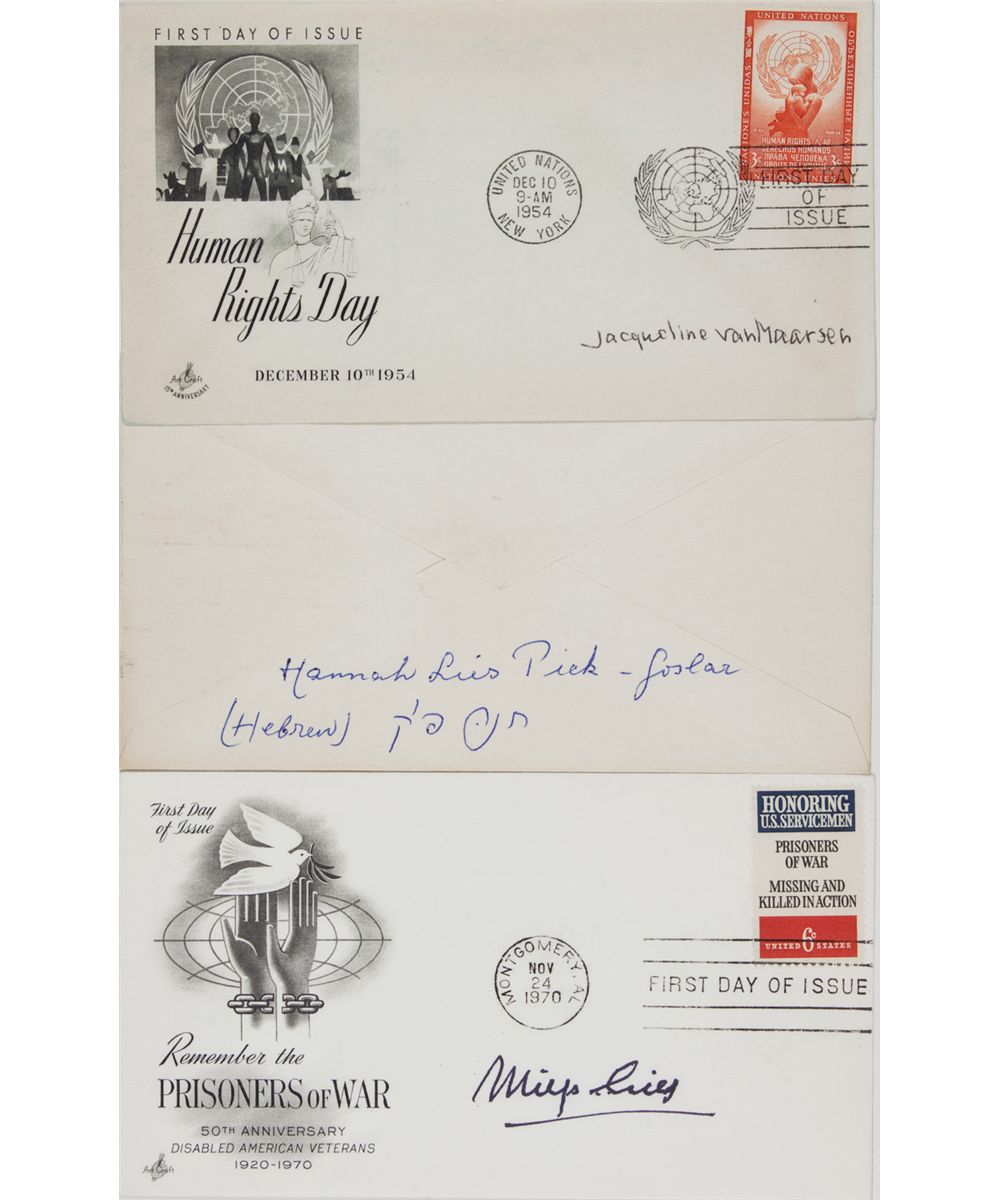 FIRST DAY OF ISSUE
Human
Rights Day
DECEMBER 10TH 1954
Art Craft
15TH ANNIVERSARY
UNITED NATIONS
DEC 10
9-AM
1954
NEW YORK
UNITED NATIONS
NACIONES UNIDAS
ОБЪЕДИНЕННЫЕ НАЦИИ
HUMAN RIGHTS
DERECHOS HUMANOS
ПРАВА ЧЕЛОВЕКА
3c 3c
NATIONS UNIES
FIRST DAY
OF
ISSUE
Jacqueline van Maarsen
Hannah Lies Pick - Goslar
(Hebrew) חנה פיק
First Day
of Issue
Remember the
PRISONERS OF WAR
50TH ANNIVERSARY
DISABLED AMERICAN VETERANS
1920-1970
Art Craft
MONTGOMERY, AL
NOV
24
1970
HONORING
U.S. SERVICEMEN
PRISONERS
OF WAR
MISSING AND
KILLED IN ACTION
6c
UNITED STATES
FIRST DAY OF ISSUE
Miep Gies